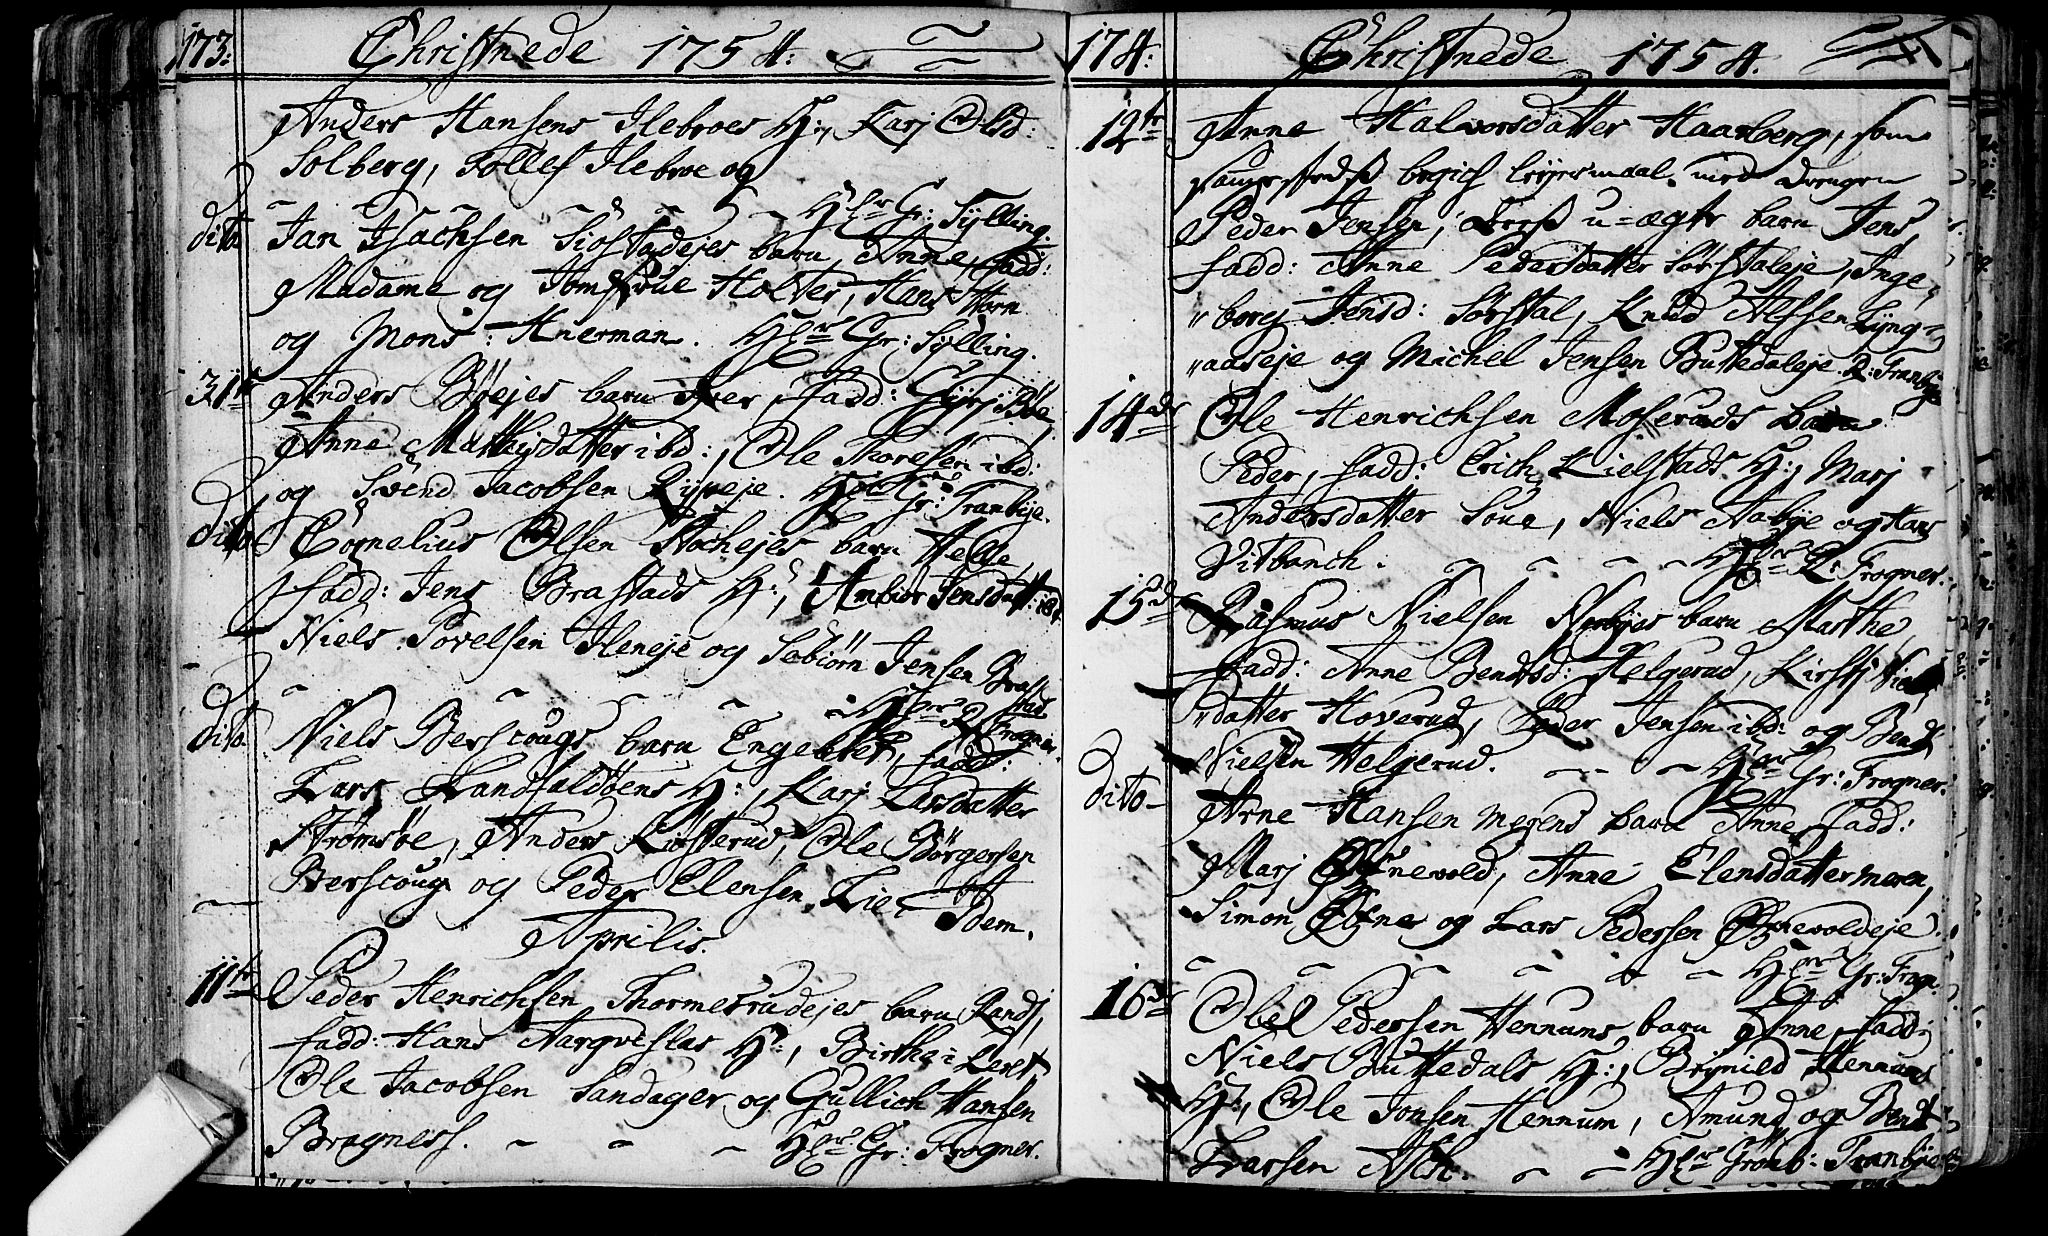 173. Christnede 1754.
Anders Hansens Ilebroes H:, Karj Olsd:
Solberg, Tollef Ilebroe og
dito Jan Isachsen Siøstadejes barn Anne, fadd:
Hr Gr: Sylling.
Madame og Jomfrue Holter, Hans Horn
og Mons: Knerman. Hr Gr: Sylling.
31te Anders Bøejes barn Iver, fadd: Gurj Bøe,
Anne Mathisdatter ibd:, Ole Thoresen ibd:
og Svend Jacobsen eje. Hr Gr: Tranbye.
dito Cornelius Olsen Stochejes barn Helle,
fadd: Jens Brastads H:, Ambior Jensdatt: ibd
Niels Povelsen Ileneje og Søbiørn Jensen Brastad
Hr Frogner.
dito Niels Berscougs barn Engebret, fadd:
Lars Landfaldøens H:, Karj Larsdatter
Strømsøe, Anders Kiøsterud, Ole Børgersen
Berscoug og Peder Elensen Lie. Idem.
Aprilis.
11te Peder Henrichsen Thormesrudejes barn Randj,
fadd: Hans Aargveslas H:, Birtha i Leret,
Ole Jacobsen Sandager og Gullich Hansen
Bragness. Hr Gr: Frogner.
174. Christnede 1754.
12te Anne Halvorsdatter Haarberg, som
begich leyermaal med drengen
Peder Jensen, deres u-ægte barn Jens,
fadd: Anne Pedersdatter Sørstaleje, Inge-
borg Jensd: Sørstal, Knud Alfsen Lyng-
aaseje og Michel Jensen Buttedaleje. Tranbye
14de Ole Henrichsen Moseruds barn
Peder, fadd: Erich Kielstads H:, Marj
Andersdatter Soue, Niels Aabye og Hans
Vitbanch. Hr Frogner.
15de Rasmus Nielsen Nerbyes barn Marthe,
fadd: Anne Bendtsd: Helgerud, Kirstj Niels
datter Hoverud, Peder Jensen ibd: og Bendt
Nielsen Helgerud. Hr Gr: Frogner.
dito Arne Hansen Merens barn Anne, fadd:
Marj Øfnevold, Anne Elensdatter Meren,
Simon Øfne og Lars Pedersen Øfnevoldeje.
Hr Gr: Frogn.
16de Obel Pedersen Hennums barn Anne, fadd:
Niels Buttedals H:, Brynild Hennums
H:, Ole Jonsen Hennum, Amund og Bendt
Larsen Ask. Hr Grønb: Tranbye.